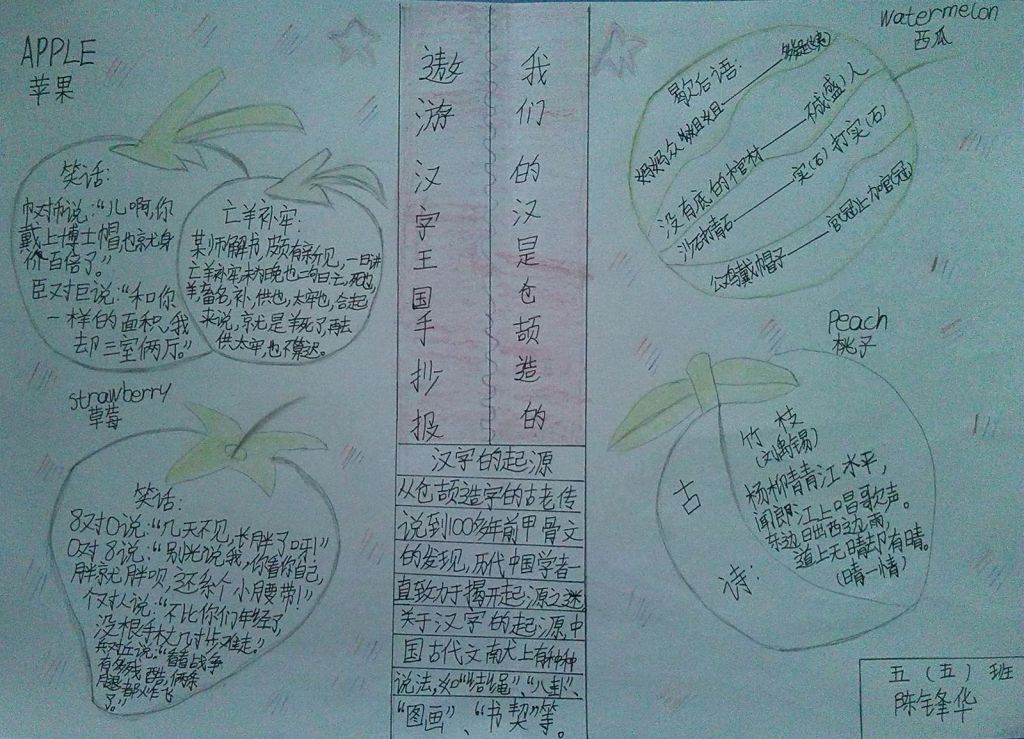 APPLE
苹果
笑话:
巾对币说:“儿啊,你
戴上博士帽也就身
价百倍了。”
臣对巨说:“和你
一样的面积,我
却三室俩厅。”
亡羊补牢:
某师解书,颇有新见,一日讲
亡羊补牢
来说,就是羊死了再去
供太牢,也不算迟。
strawberry
草莓
笑话:
8对0说:“几天不见,长胖了呀!”
0对8说:“别光说我,你看你自己,
胖就胖呗,还系个小腰带!”
个对人说:“不比你们年轻了,
没根手杖几对步难走。”
兵对丘说:“看看战争
有多残酷,俩条
腿都炸飞
了。”
遨游汉字王国手抄报
我们的汉是仓颉造的
汉字的起源
从仓颉造字的古老传
说到100多年前甲骨文
的发现,历代中国学者一
直致力于揭开起源之迷
关于汉字的起源,中
国古代文献上有种种
说法,如“结绳”、“八卦”、
“图画”、“书契”等。
watermelon
西瓜
歇后语:
妈妈众“姐姐
没有底的棺材——碱(盛)人
沙石打青石——实(石)打实(石)
公鸡戴帽子——官冠上加官(冠)
Peach
桃子
古诗:
竹枝
(刘禹锡)
杨柳青青江水平,
闻郎江上唱歌声。
东边日出西边雨,
道上无晴却有晴。
(晴—情)
五(五)班
陈锋华